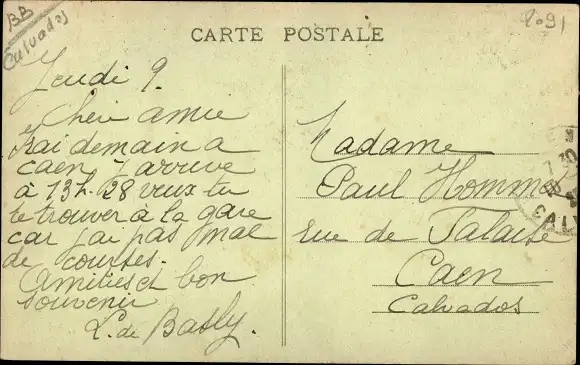 BB
Calvados
2091
CARTE POSTALE
Jeudi 9.
Chère amie
J'irai demain a
caen j arrive
à 13h.28 veux tu
te trouver à la gare
car j'ai pas mal
de courses.
Amitiés et bon
souvenir
L. de Basly.
Madame
Paul Homme
rue de Falaise
Caen
Calvados